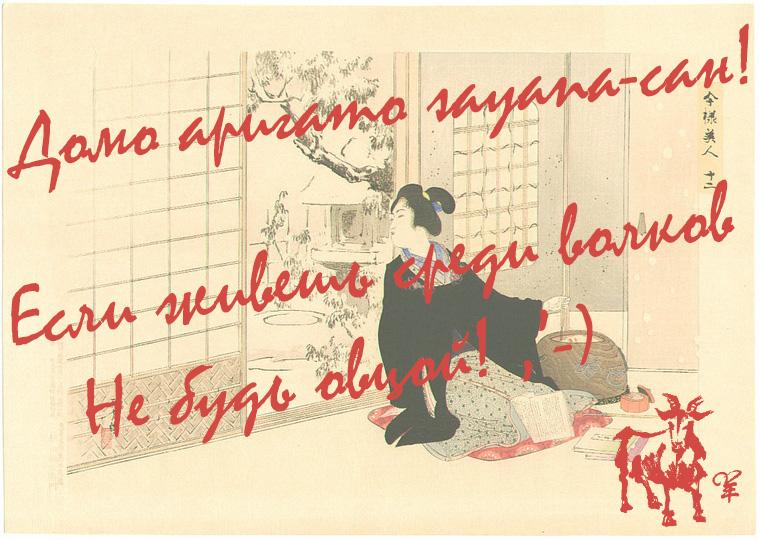 Домо аригато sayana-сан!
今様美人 十二
Если живешь среди волков
Не будь овцой! ,'-)